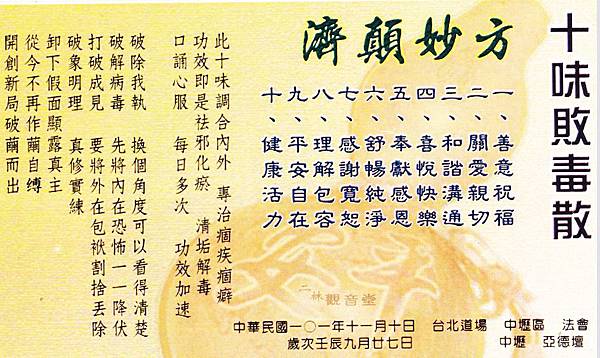 十味敗毒散
濟顛妙方
一、善意祝福
二、關愛親切
三、和諧溝通
四、喜悅快樂
五、奉獻感恩
六、舒暢純淨
七、感謝寬恕
八、理解包容
九、平安自在
十、健康活力
此十味調合內外　專治痼疾痼癖
功效即是袪邪化瘀　清垢解毒
口誦心服　每日多次　功效加速
破除我執　換個角度可以看得清楚
破解病毒　先將內在恐怖一一降伏
打破成見　要將外在包袱割捨丟除
破象明理　真修實練
卸下假面顯露真主
從今不再作繭自縛
開創新局破繭而出
二林觀音堂
中華民國一○一年十一月十日　台北道場　中壢區　法會
歲次壬辰九月廿七日　中壢　亞德壇